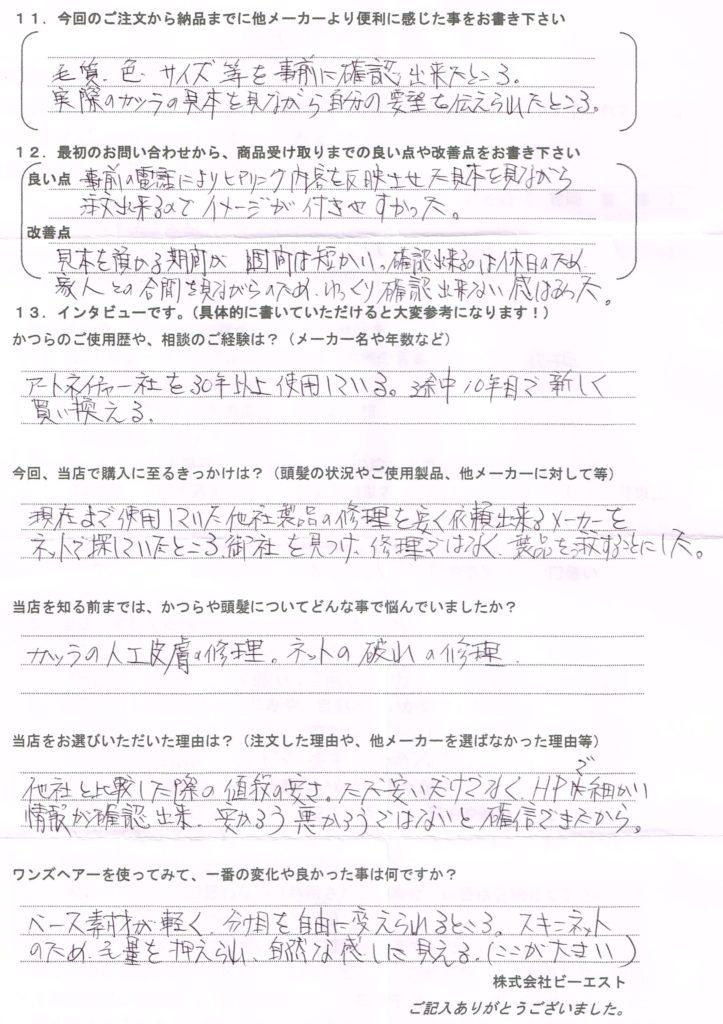 11．今回のご注文から納品までに他メーカーより便利に感じた事をお書き下さい
毛質、色、サイズ等を事前に確認出来たところ。
実際のカツラの見本を見ながら自分の要望を伝えられたところ。
12．最初のお問い合わせから、商品受け取りまでの良い点や改善点をお書き下さい
良い点 事前の電話によりヒアリング内容を反映させた見本を見ながら
注文出来るのでイメージが付きやすかった。
改善点
見本を預かる期間が 週間は短かい。確認出来るのは休日のため、
家人との合間を見ながらのため、ゆっくり確認出来ない感はあった。
13．インタビューです。（具体的に書いていただけると大変参考になります！）
かつらのご使用歴や、相談のご経験は？（メーカー名や年数など）
アートネイチャー社を30年以上使用している。途中10年目で新しく
買い換える。
今回、当店で購入に至るきっかけは？（頭髪の状況やご使用製品、他メーカーに対して等）
現在まで使用していた他社製品の修理を安く依頼出来るメーカーを
ネットで探していたところ、御社を見つけ、修理ではなく、製品を することにした。
当店を知る前までは、かつらや頭髪についてどんな事で悩んでいましたか？
カツラの人工皮膚の修理。ネットの破れの修理
当店をお選びいただいた理由は？（注文した理由や、他メーカーを選ばなかった理由等）
他社と比較した際の値段の安さ。ただ安いだけでなく、HPで細かい
情報が確認出来、安かろう悪かろうではないと確信できたから。
ワンズヘアーを使ってみて、一番の変化や良かった事は何ですか？
ベース素材が軽く、分け目を自由に変えられるところ。スキニネット
のため、毛量を押えられ、自然な感じに見える。（ここが大きい）
株式会社ビーエスト
ご記入ありがとうございました。